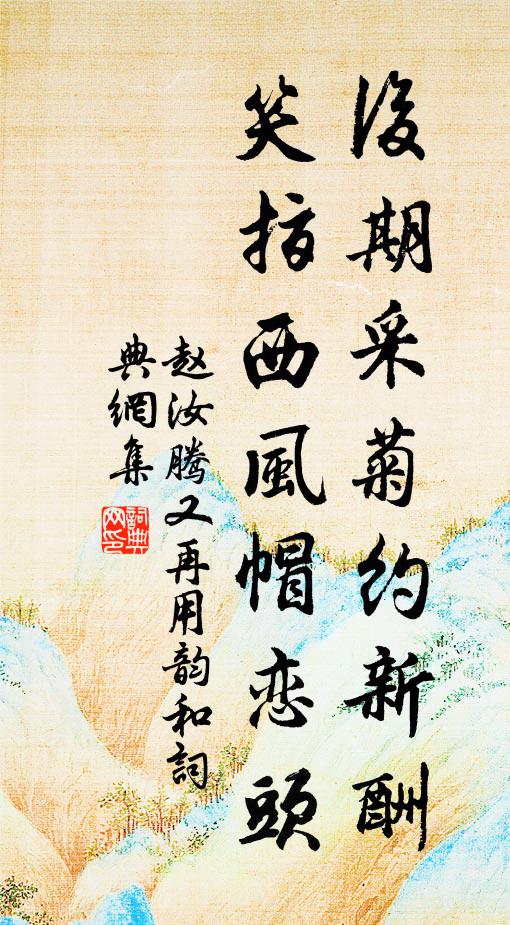 後期采菊约新酬
笑指西風帽恋頭
赵汝腾又再用韵和詞
典網集
詞典网印